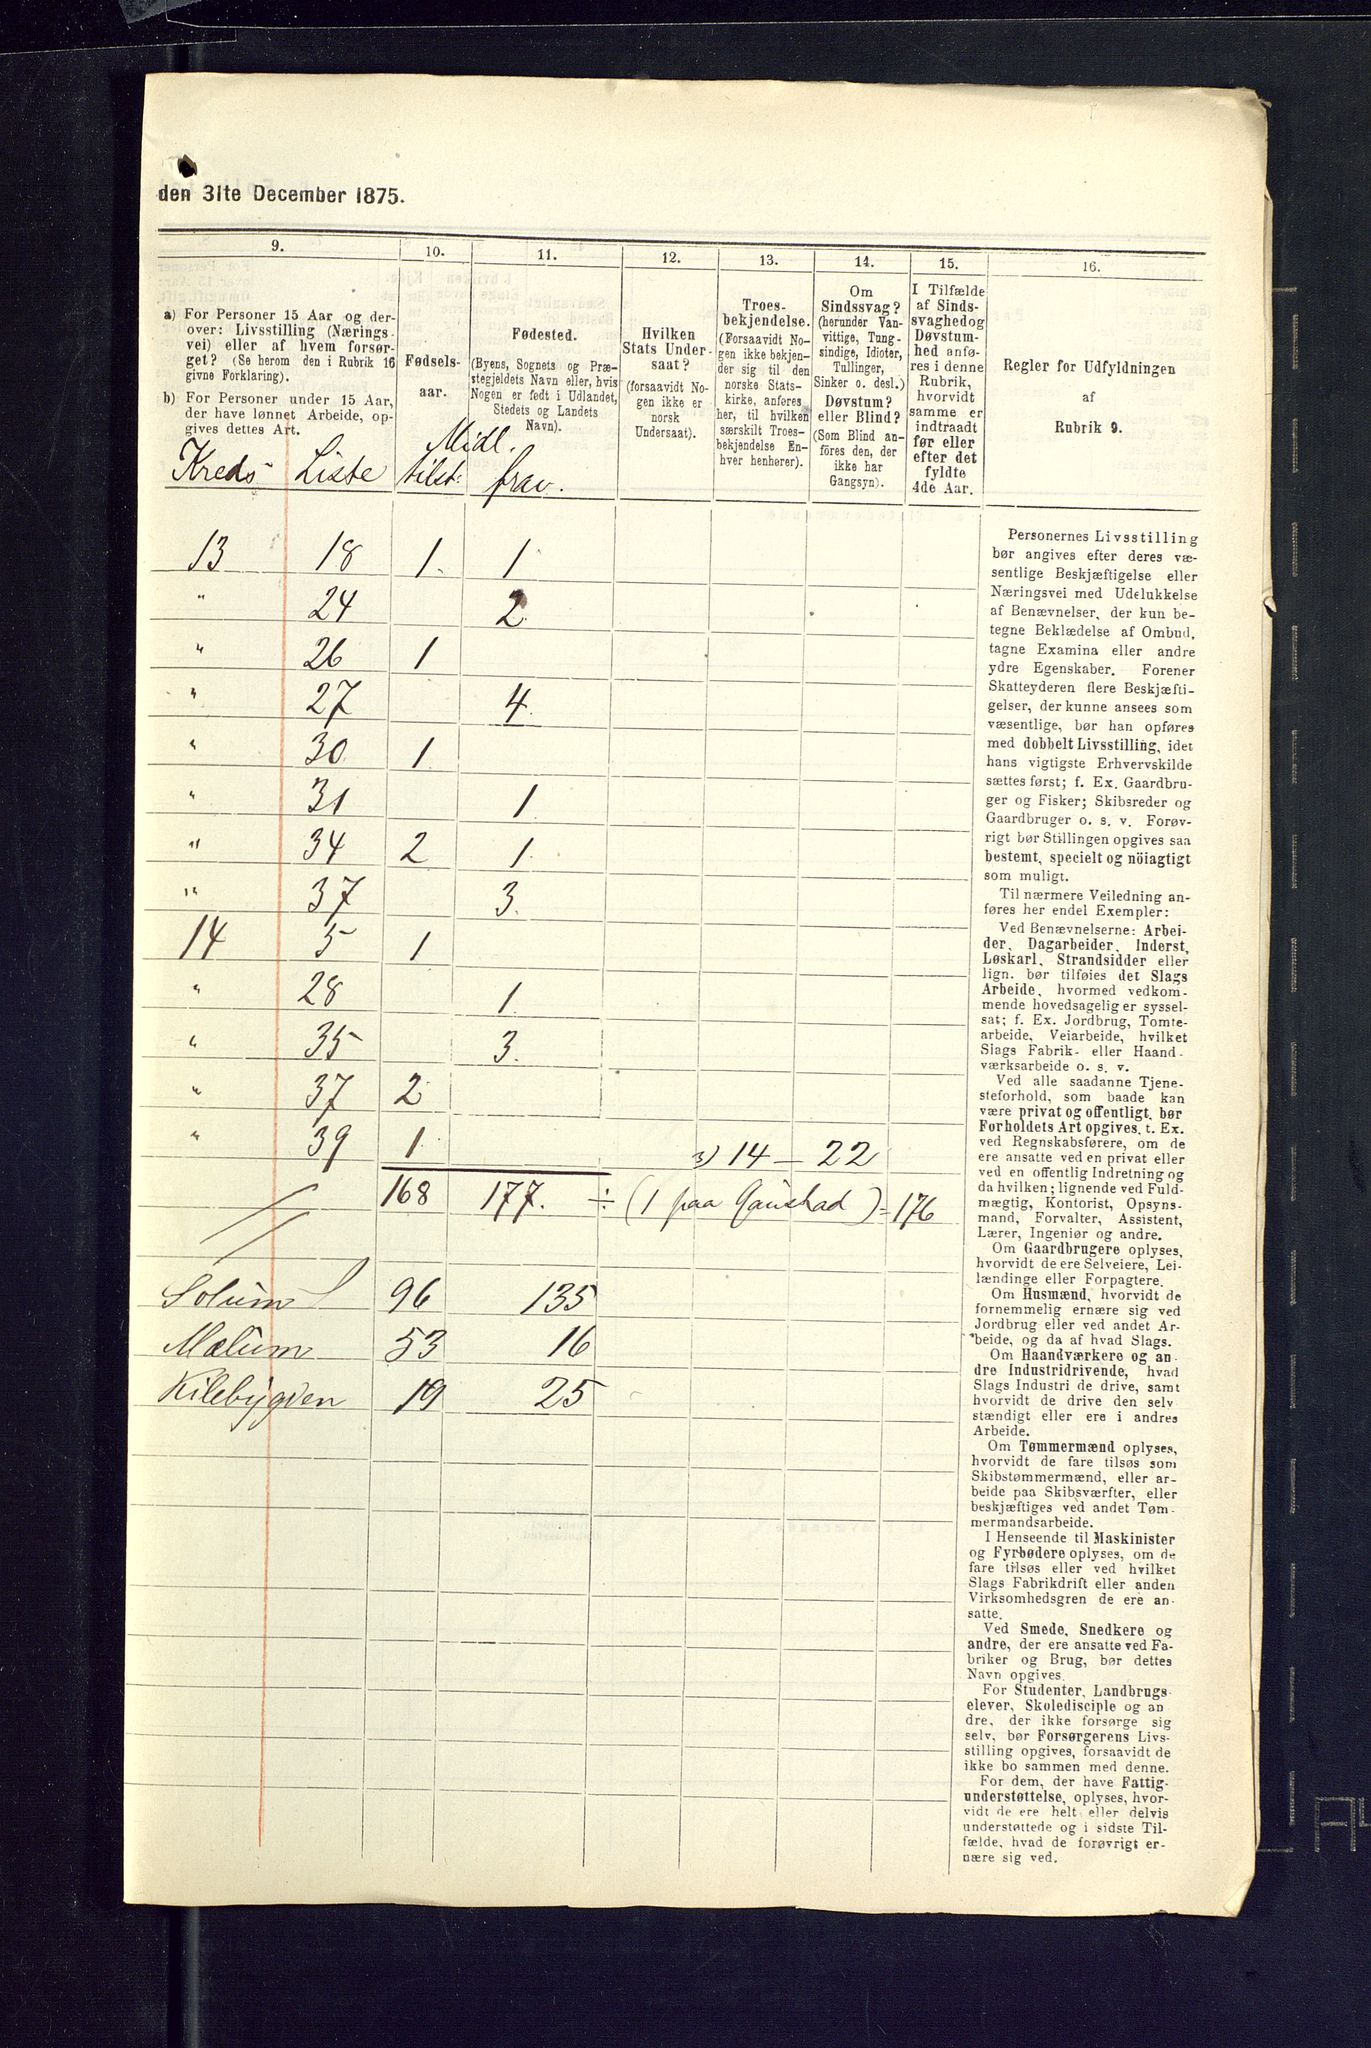 den 31te December 1875.
9.
10.
11.
12.
13.
14.
15.
16.
a) For Personer 15 Aar og der-
over: Livsstilling (Nærings-
vei) eller af hvem forsør-
get? (Se herom den i Rubrik 16
givne Forklaring).
b) For Personer under 15 Aar,
der have lønnet Arbeide, op-
gives dettes Art.
Fødsels-
aar.
Fødested.
(Byens, Sognets og Præ-
stegjeldets Navn eller, hvis
Nogen er født i Udlandet,
Stedets og Landets
Navn).
Hvilken
Stats Under-
saat?
(forsaavidt No-
gen ikke er
norsk
Undersaat).
Troes-
bekjendelse.
(Forsaavidt No-
gen ikke bekjen-
der sig til den
norske Stats-
kirke, anføres
her, til hvilken
særskilt Troes-
bekjendelse En-
hver henhører).
Om
Sindssvag?
(herunder Van-
vittige, Tung-
sindige, Idioter,
Tullinger,
Sinker o. desl.)
Døvstum?
eller Blind?
(Som Blind an-
føres den, der
ikke har
Gangsyn).
I Tilfælde
af Sinds-
svaghed og
Døvstum-
hed anfø-
res i denne
Rubrik,
hvorvidt
samme er
indtraadt
før eller
efter det
fyldte
4de Aar.
Regler for Udfyldningen
af
Rubrik 9.
Midl.
Kreds- Liste tilst. frav.
13 18 1. 1.
" 24 2.
" 26 1
" 27 4.
" 30. 1.
" 31 1.
" 34 2 1.
" 37 3.
14 5 1
" 28 1.
" 35 3.
" 37 2
" 39 1. 3) 14 — 22
168 177. ÷ (1 paa Gaustad) = 176
Solum 96 135
Mælum 53 16
Kilebygden 19 25
Personernes Livsstilling
bør angives efter deres væ-
sentlige Beskjæftigelse eller
Næringsvei med Udelukkelse
af Benævnelser, der kun be-
tegne Beklædelse af Ombud,
tagne Examina eller andre
ydre Egenskaber. Forener
Skatteyderen flere Beskjæfti-
gelser, der kunne ansees som
væsentlige, bør han opføres
med dobbelt Livsstilling, idet
hans vigtigste Erhvervskilde
sættes først; f. Ex. Gaardbru-
ger og Fisker; Skibsreder og
Gaardbruger o. s. v. Forøv-
rigt bør Stillingen opgives saa
bestemt, specielt og nöiagtigt
som muligt.
Til nærmere Veiledning an-
føres her endel Exempler:
Ved Benævnelserne: Arbei-
der, Dagarbeider, Inderst,
Løskarl, Strandsidder eller
lign. bør tilføies det Slags
Arbeide, hvormed vedkom-
mende hovedsagelig er syssel-
sat; f. Ex. Jordbrug, Tomte-
arbeide, Veiarbeide, hvilket
Slags Fabrik- eller Haand-
værksarbeide o. s. v.
Ved alle saadanne Tjene-
steforhold, som baade kan
være privat og offentligt, bør
Forholdets Art opgives, t. Ex.
ved Regnskabsførere, om de
ere ansatte ved en privat eller
ved en offentlig Indretning og
da hvilken; lignende ved Fuld-
mægtig, Kontorist, Opsyns-
mand, Forvalter, Assistent,
Lærer, Ingeniør og andre.
Om Gaardbrugere oplyses,
hvorvidt de ere Selveiere, Lei-
lændinge eller Forpagtere.
Om Husmænd, hvorvidt de
fornemmelig ernære sig ved
Jordbrug eller ved andet Ar-
beide, og da af hvad Slags.
Om Haandværkere og an-
dre Industridrivende, hvad
Slags Industri de drive, samt
hvorvidt de drive den selv-
stændigt eller ere i andres
Arbeide.
Om Tømmermænd oplyses,
hvorvidt de fare tilsøs som
Skibstømmermænd, eller ar-
beide paa Skibsværfter, eller
beskjæftiges ved andet Tøm-
mermandsarbeide.
I Henseende til Maskinister
og Fyrbødere oplyses, om de
fare tilsøs eller ved hvilket
Slags Fabrikdrift eller anden
Virksomhedsgren de ere an-
satte.
Ved Smede, Snedkere og
andre, der ere ansatte ved Fa-
briker og Brug, bør dettes
Navn opgives.
For Studenter, Landbrugs-
elever, Skoledisciple og an-
dre, der ikke forsørge sig
selv, bør Forsørgerens Livs-
stilling opgives, forsaavidt de
ikke bo sammen med denne.
For dem, der have Fattig-
understøttelse, oplyses, hvor-
vidt de ere helt eller delvis
understøttede og i sidste Til-
fælde, hvad de forøvrigt er-
nære sig ved.